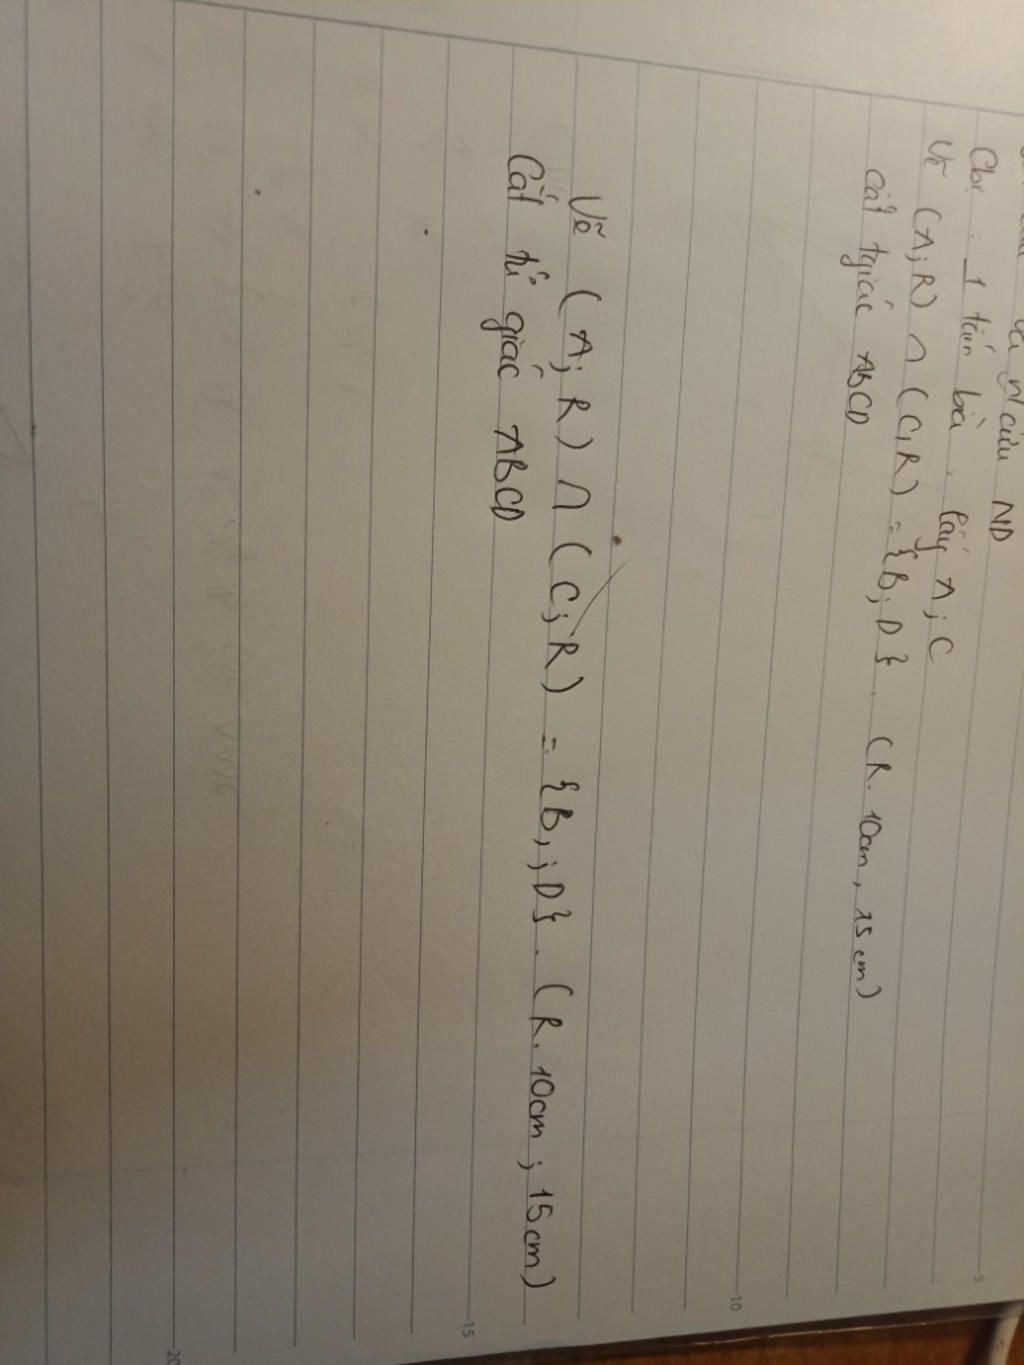 và n/cứu ND
Cho : 1 tấm bìa, lấy A; C
Vẽ (A; R) ∩ (C, R) = {B; D}. (R. 10cm, 15cm)
cắt tgiác ABCD
Vẽ (A; R) ∩ (C; R) = {B, ; D}. (R. 10cm ; 15cm)
Cắt tứ giác ABCD
5
10
15
20